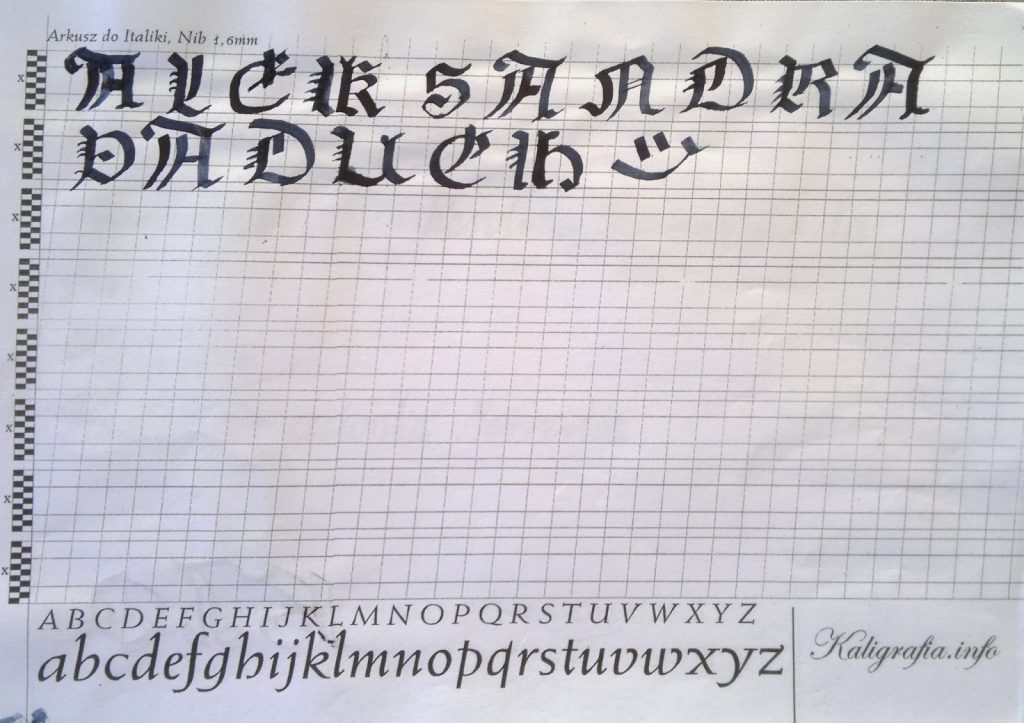 Arkusz do Italiki, Nib 1,6mm
x ALEKSANDRA
x PADUCH
x
x
x
x
x
x
ABCDEFGHIJKLMNOPQRSTUVWXYZ
abcdefghijklmnopqrstuvwxyz
Kaligrafia.info